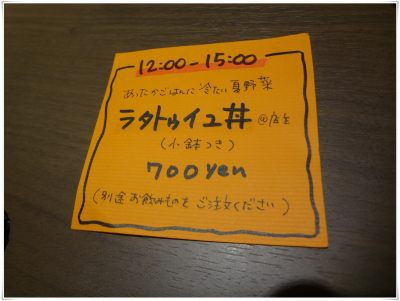 12:00-15:00
あったかごはんに冷たい夏野菜
ラタトゥイユ丼 @店主
(小鉢つき)
700yen
(別途 お飲みものを ご注文ください)